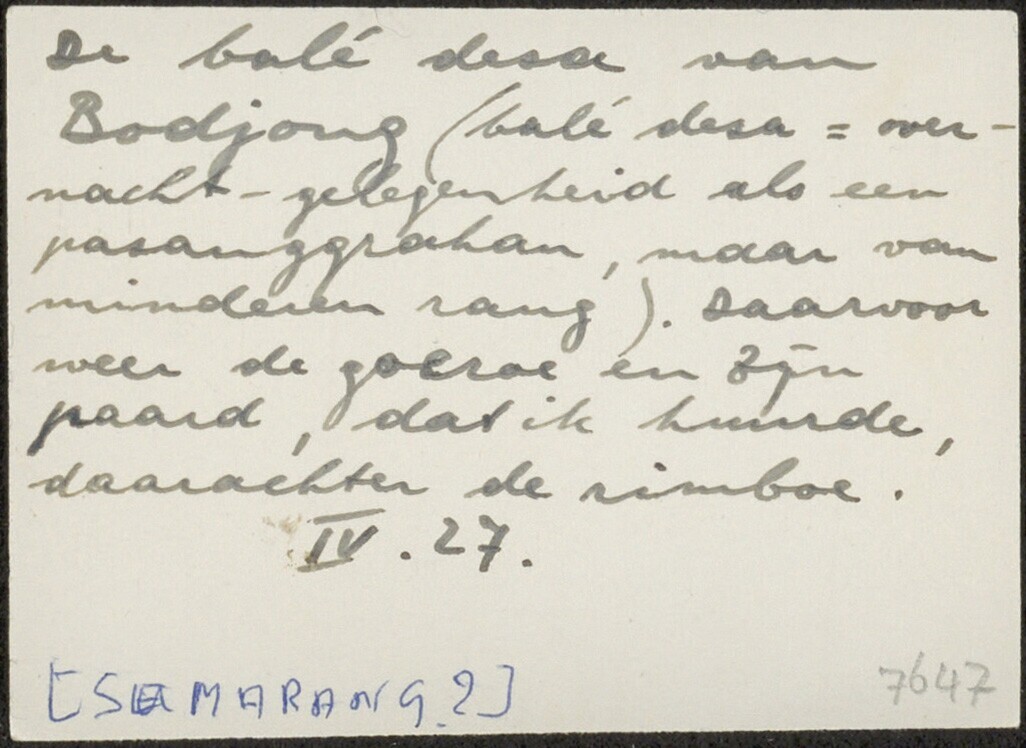 De balé desa van
Bodjong (balé desa = over-
nacht-gelegenheid als een
pasanggrahan, maar van
minderen rang). Daarvoor
weer de goeroe en zijn
paard, dat ik huurde,
daarachter de rimboe.
IV. 27.
[SEMARANG?]
7647